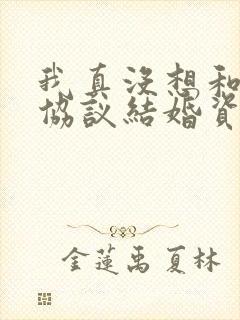 我真没想和
協议結婚資
金蓮禹 夏林